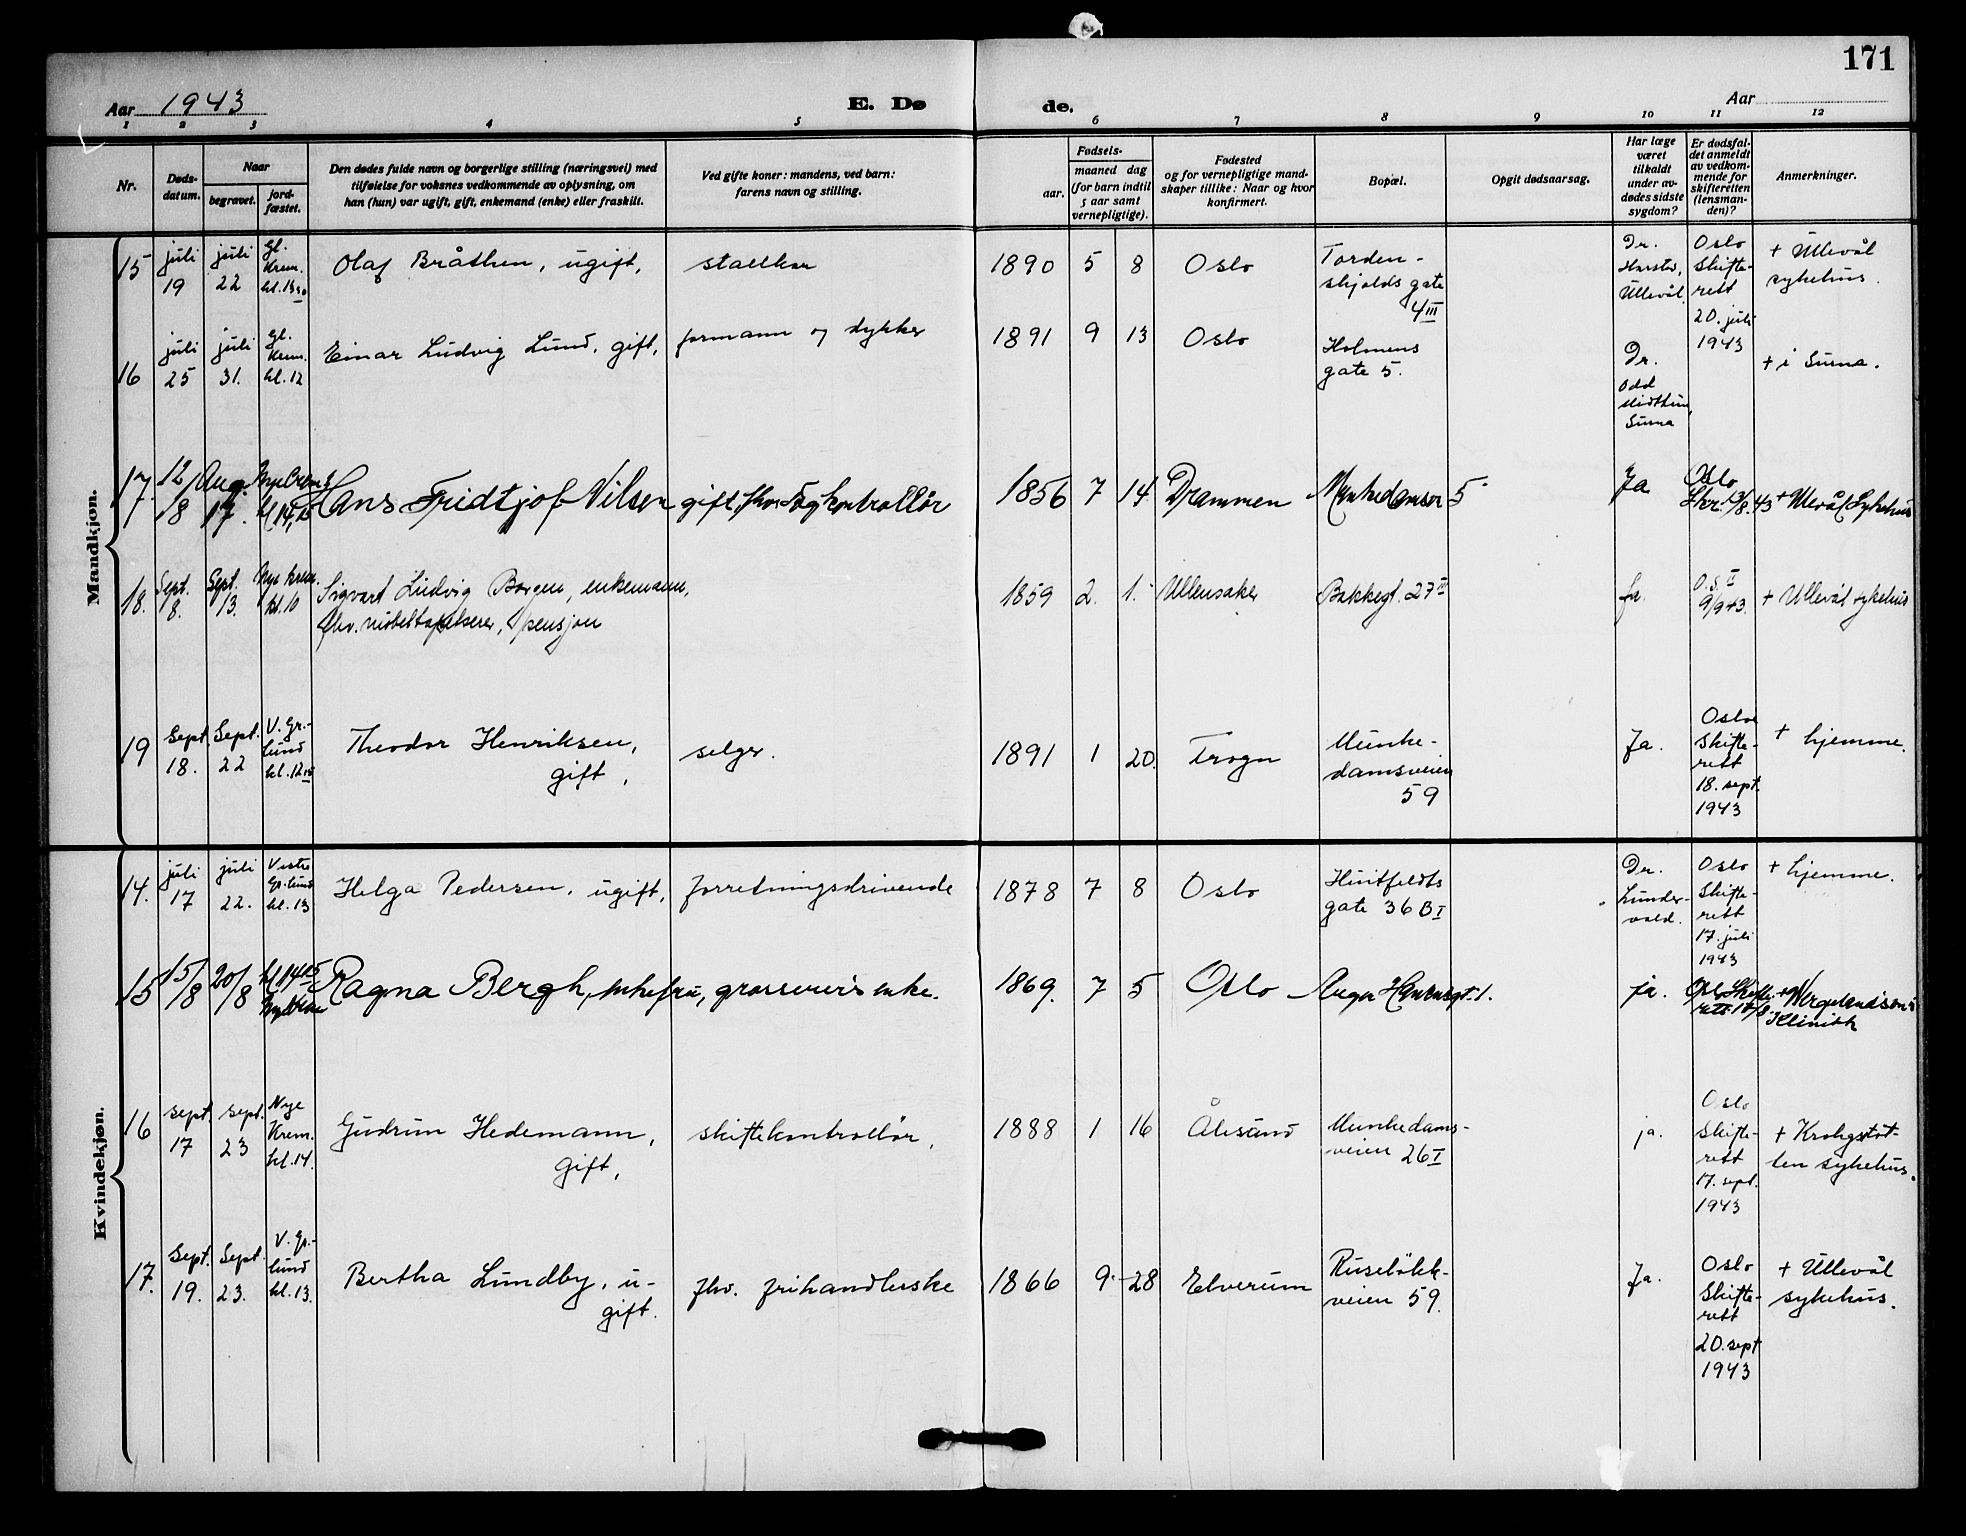 171
Aar 1943
E. Dø
de.
Aar
1 2 3 4 5 6 7 8 9 10 11 12
Nr.
Døds-
datum.
Naar
begravet.
jord-
fæstet.
Den dødes fulde navn og borgerlige stilling (næringsvei) med
tilføielse for voksnes vedkommende av oplysning, om
han (hun) var ugift, gift, enkemand (enke) eller fraskilt.
Ved gifte koner: mandens, ved barn:
farens navn og stilling.
Fødsels-
aar.
maaned dag
(for barn indtil
5 aar samt
vernepligtige).
Fødested
og for vernepligtige mand-
skaper tillike: Naar og hvor
konfirmert.
Bopæl.
Opgit dødsaarsag.
Har læge
været
tilkaldt
under av-
dødes sidste
sygdom?
Er dødsfal-
det anmeldt
av vedkom-
mende for
skifteretten
(lensman-
den)?
Anmerkninger.
Mandkjøn.
15
juli
19
juli
22
gl.
Krem.
kl. 13 30
Olaf Bråthen, ugift,
stallkar
1890 5 8
Oslo
Torden-
skjolds gate
4 III
Dr.
Ullevål
Oslo
Skifte-
rett
20. juli
1943
+ Ullevål
sykehus.
16
juli
25
juli
31.
gl.
Krem.
kl. 12
Einar Ludvig Lund, gift,
formann og dykker
1891 9 13
Oslo
Holmens
gate 5.
Dr.
Odd
Midthun,
Surna
+ i Surna.
17.
12/8
Aug.
17.
Hans Fridtjof Nilsen
gift, fhv. Togkontrollør
1856 7 14
Drammen
Munkedamsv 5
Ja
Oslo
Skr. 13/8. 43
+ Ullevål Sykehus
18.
Sept.
8.
Sept.
13.
Nye krem.
kl. 10
Sigvart Ludvig Borgen, enkemann,
fhv. møbeltapetserer, pensjon
1859 2. 1.
Ullensaker
Bakkegt. 27 III
Ja.
O.S. II
9/9 43.
+ Ullevål sykehus
19
Sept.
18.
Sept.
22
V. Gr.-
lund
kl. 12 15
Theodor Henriksen,
gift,
selger.
1891 1 20.
Trogn
Munke-
damsveien
59
Ja.
Oslo
Skifte-
rett
18. sept.
1943
+ hjemme.
Kvindekjøn.
14.
juli
17
juli
22.
Vestre
Gr. lund
kl. 13
Helga Pedersen, ugift,
forretningsdrivende
1878 7 8
Oslo
Huitfeldts
gate 36 B I
Dr.
Lunder-
vold.
Oslo
Skifte-
rett
17. juli
1943
+ hjemme.
15
15/8
20/8
kl. 14 15
Nye Krem
Ragna Bergh, enkefru, grosserers enke.
1869. 7 5
Oslo
Ja.
Oslo Skifte-
rett 17/8.
+ Wergelandsv.s
Klinikk
16
sept.
17
sept.
23
Nye
Krem.
kl. 14.
Gudrun Hedemann,
gift,
skiftekontrollør,
1888 1 16
Ålesund
Munkedams-
veien 26 I
ja.
Oslo
Skifte-
rett
17. sept.
1943
+ Krohgstøt-
ten sykehus.
17.
Sept.
19.
Sept.
23.
V. Gr.-
lund
kl. 13.
Bertha Lundby, u-
gift.
fhv. frihandlerske
1866 9. 28
Elverum
Ruseløkk-
veien 59.
Ja.
Oslo
Skifte-
rett
20. sept
1943
+ Ullevål
sykehus.